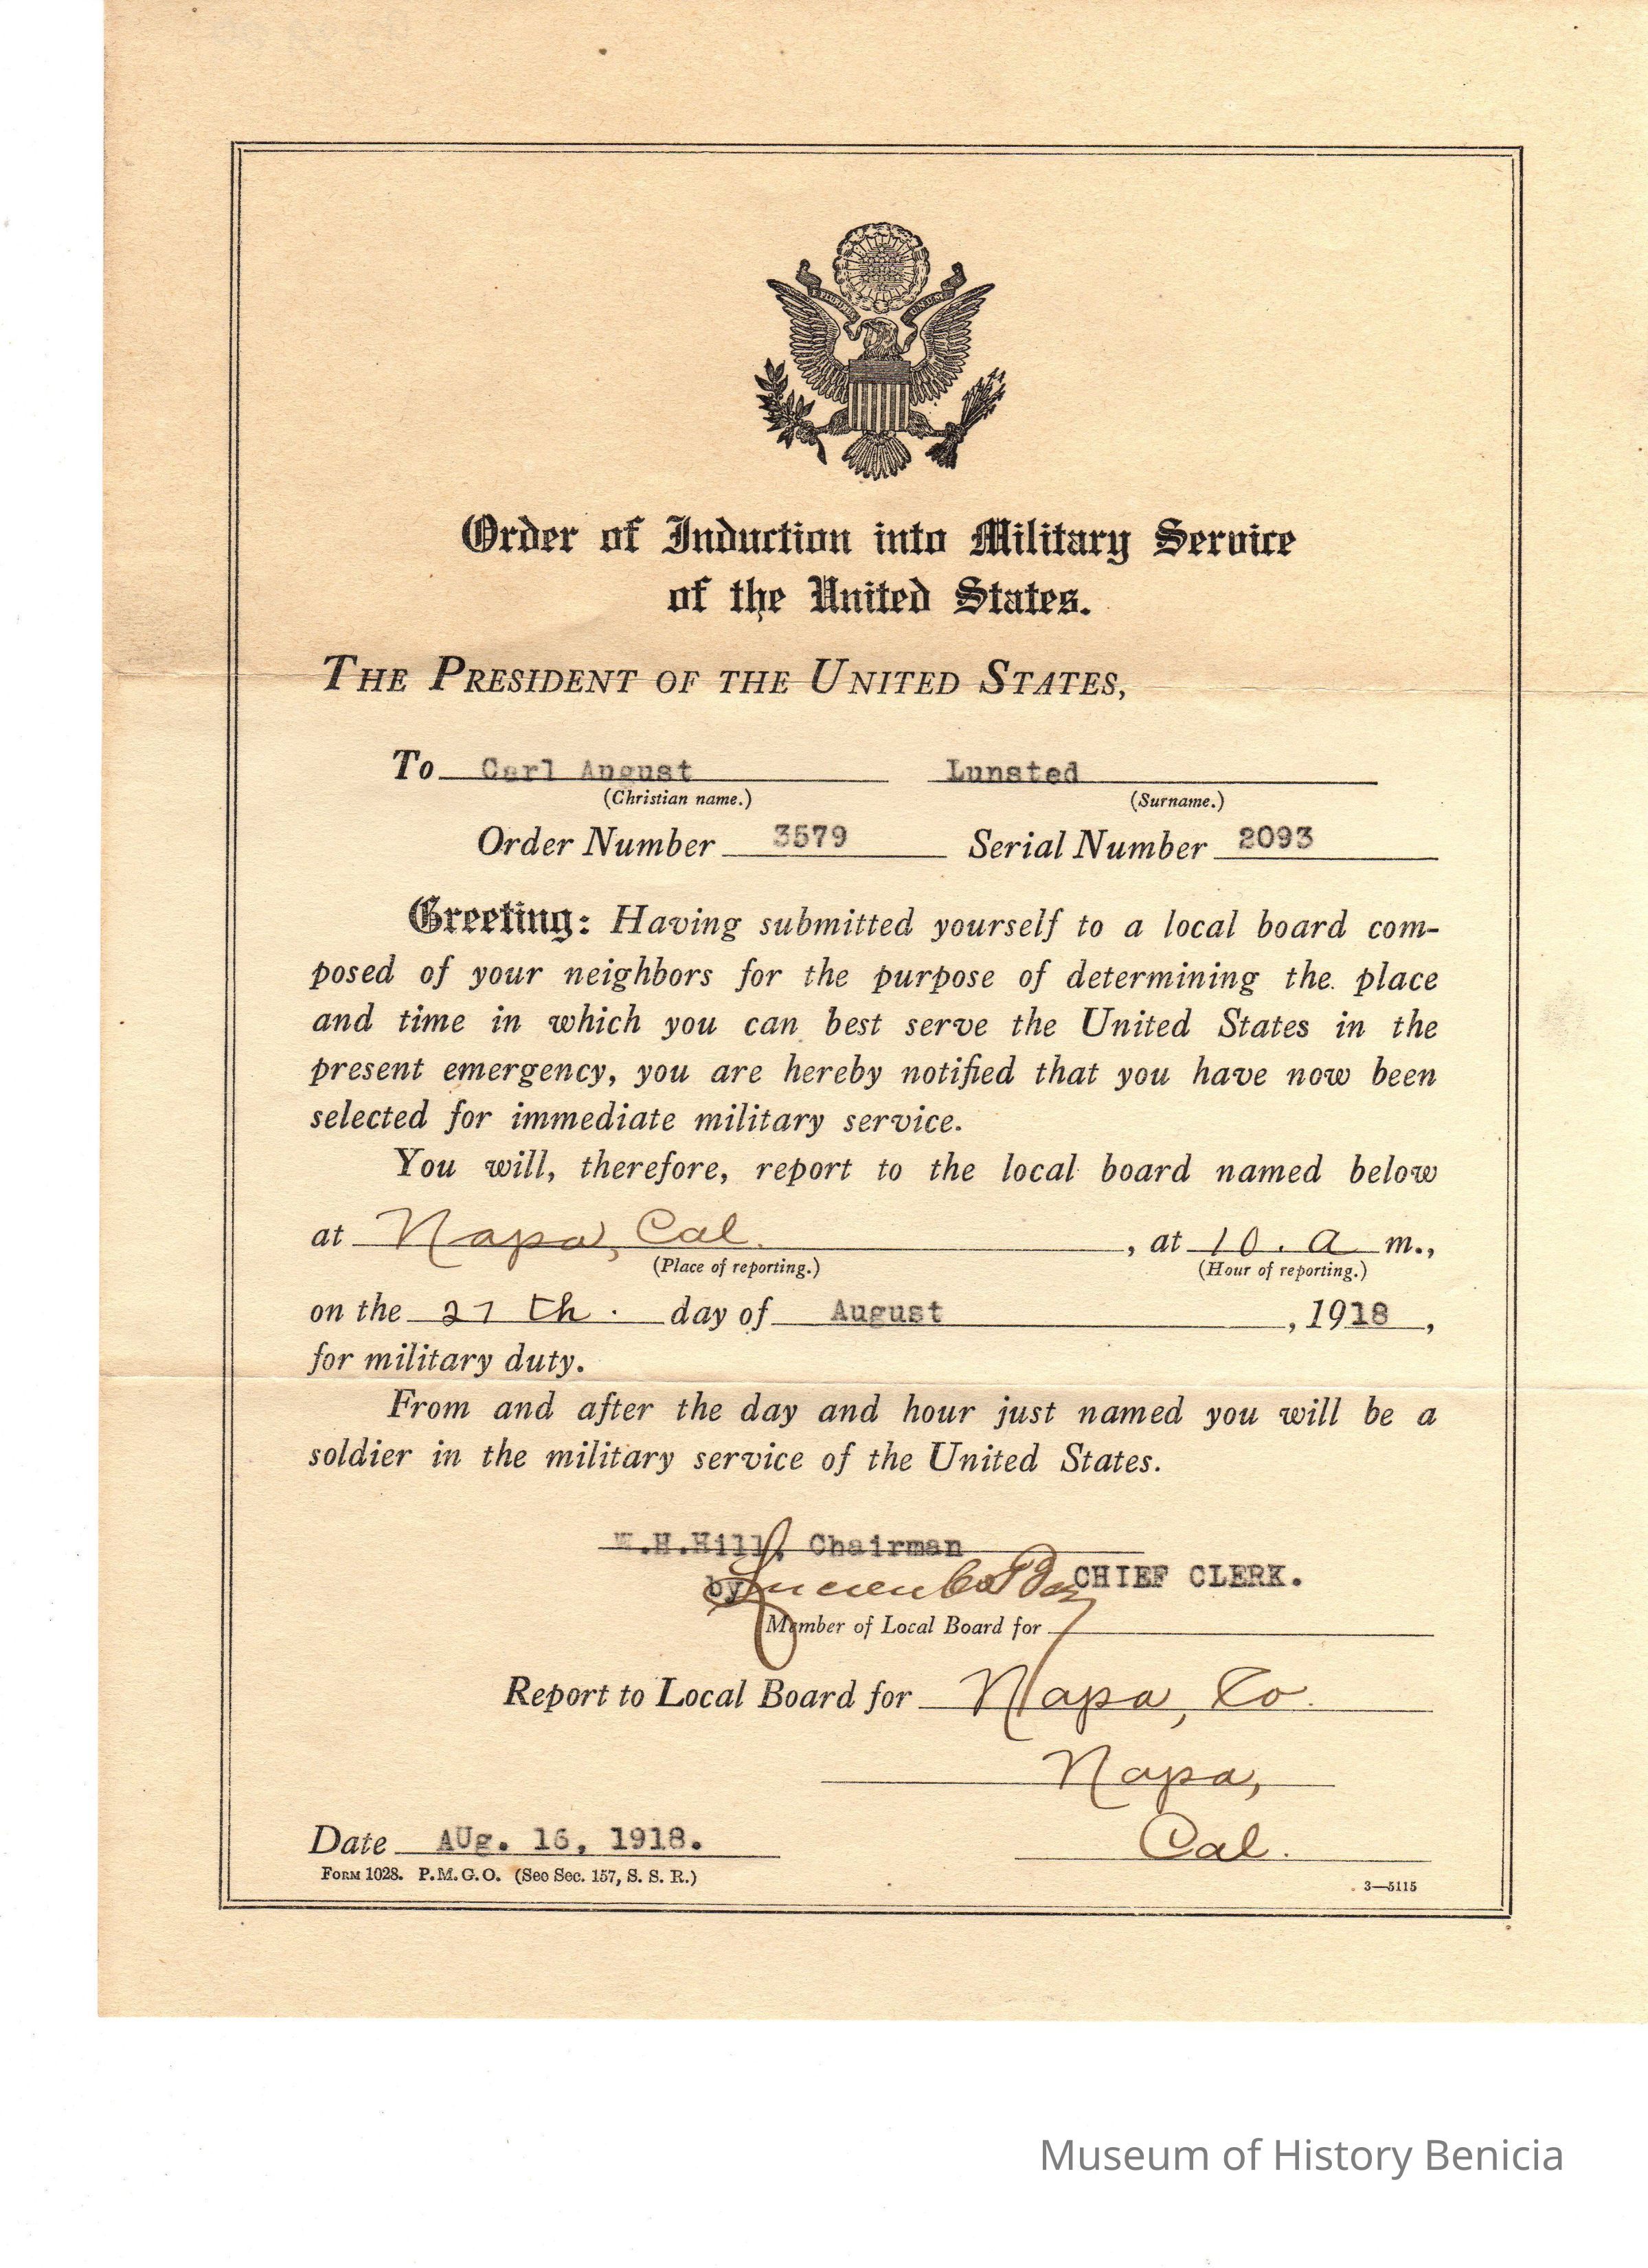 Order of Induction into Military Service
of the United States.
THE PRESIDENT OF THE UNITED STATES,
To Carl August Lunsted
(Christian name.) (Surname.)
Order Number 3579 Serial Number 2093
Greeting: Having submitted yourself to a local board com-
posed of your neighbors for the purpose of determining the place
and time in which you can best serve the United States in the
present emergency, you are hereby notified that you have now been
selected for immediate military service.
You will, therefore, report to the local board named below
at Napa, Cal. , at 10. a m.,
(Place of reporting.) (Hour of reporting.)
on the 27 th. day of August , 1918,
for military duty.
From and after the day and hour just named you will be a
soldier in the military service of the United States.
W.H.Hill, Chairman
by CHIEF CLERK.
Member of Local Board for
Report to Local Board for Napa, Co.
Napa,
Cal.
Date AUg. 16, 1918.
FORM 1028. P.M.G.O. (See Sec. 157, S. S. R.)
3—5115
Museum of History Benicia